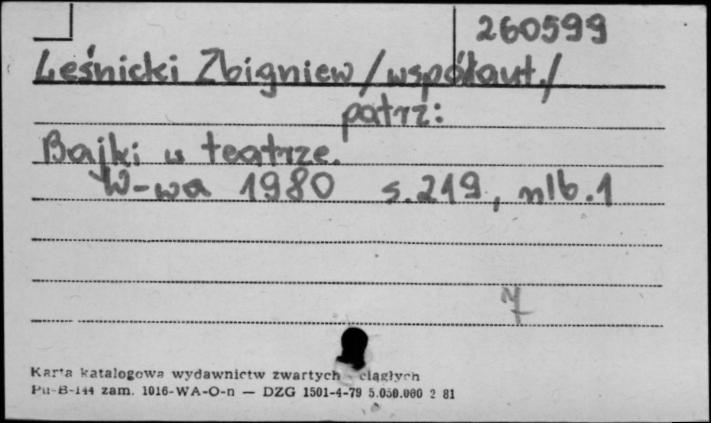 260599
Leśnicki Zbigniew /współaut./
patrz:
Bajki w teatrze.
W-wa 1980 s. 219, nlb. 1
7
Karta katalogowa wydawnictw zwartych ciągłych
Pu-B-144 zam. 1016-WA-O-n — DZG 1501-4-79 5.050.000 2 81